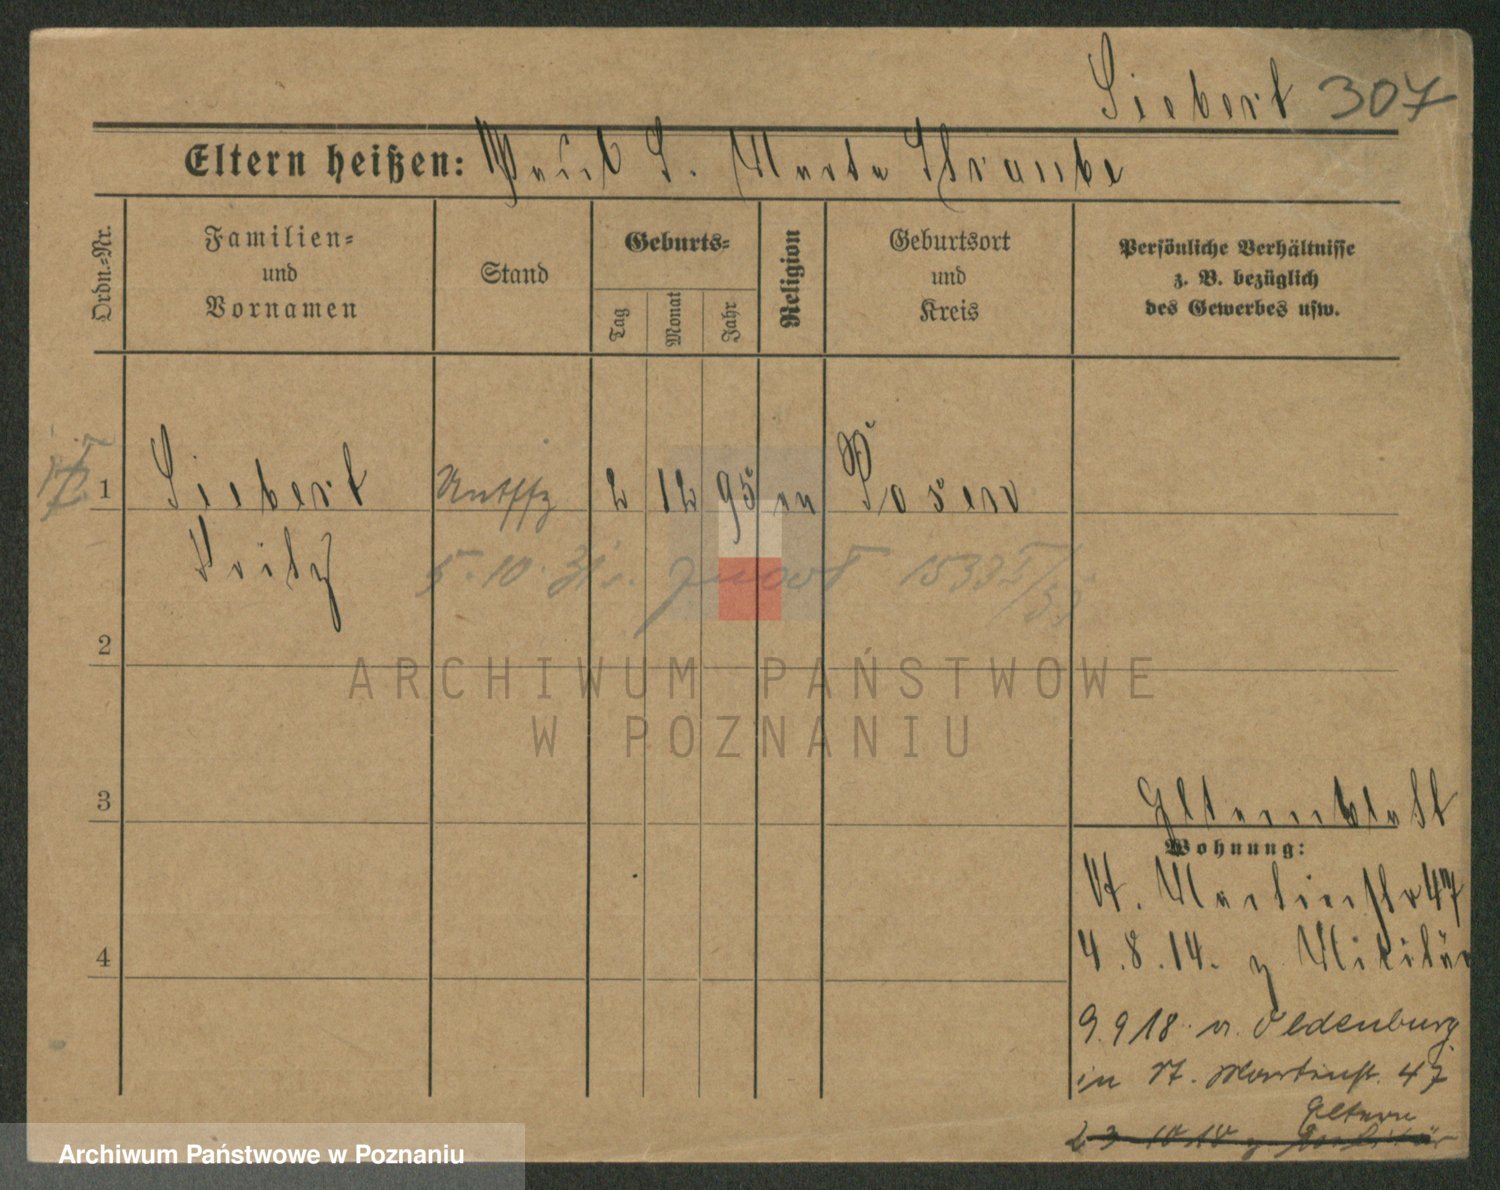 Siebert 307
Eltern heißen: Paul S. Marta Straube
Ordn.-Nr.
Familien-
und
Vornamen
Stand
Geburts-
Tag
Monat
Jahr
Religion
Geburtsort
und
Kreis
Persönliche Verhältnisse
z. B. bezüglich
des Gewerbes usw.
1 Siebert 2 12 95 Posen
Fritz
5.10. 1533
2
ARCHIWUM PAŃSTWOWE
W POZNANIU
3
Elternblatt
Wohnung:
St. Martinstr 47
4
4.8.14. z Militär
9.9 18 v. Oldenburg
in St. Martinstr. 47
Eltern
Archiwum Państwowe w Poznaniu